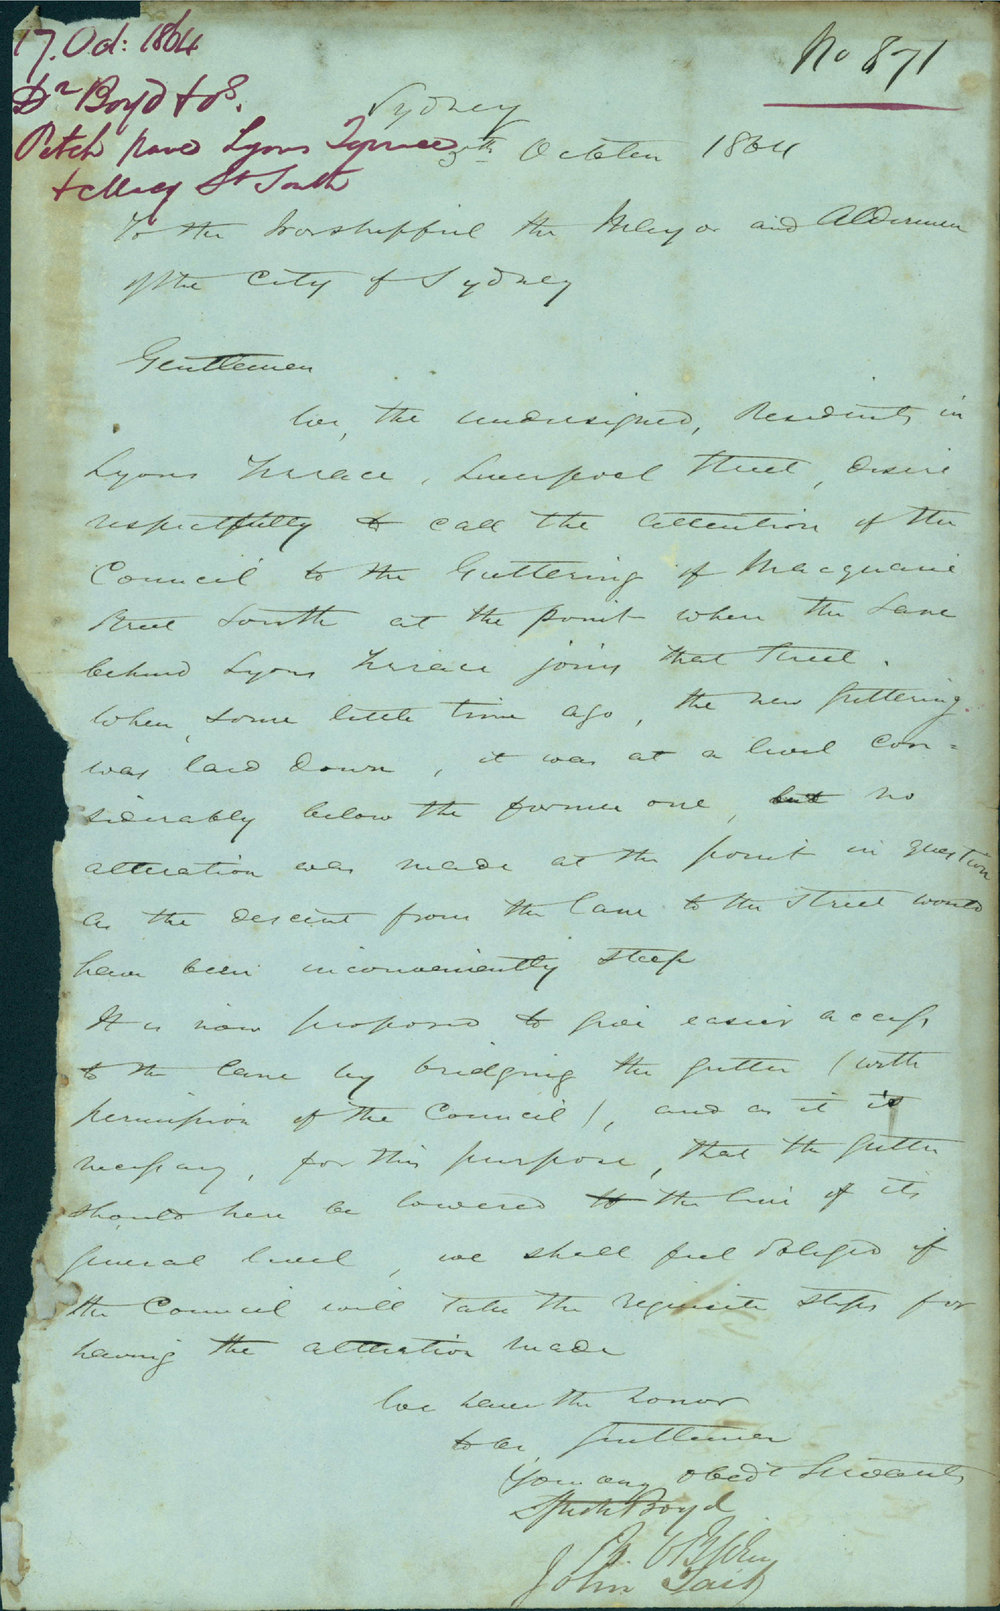 17. Oct: 1864
No 871
Dr Boyd & os.
Pitch pave Lyons Terrace
& Macq St South
Sydney
October 1864
To the Worshipful the Mayor and Aldermen
of the City of Sydney
Gentlemen
We, the undersigned, Residents in
Lyons Terrace, Liverpool Street, desire
respectfully to call the attention of the
Council to the Guttering of Macquarie
Street South at the point where the Lane
behind Lyons Terrace joins that Street.
When, some little time ago, the new guttering
was laid down, it was at a level con=
siderably below the former one, but no
alteration was made at the point in question
as the descent from the lane to the Street would
have been inconveniently steep
It is now proposed to give easier access
to the lane by bridging the gutter (with
permission of the Council), and as it is
necessary, for this purpose, that the gutter
should here be lowered to the line of its
general level, we shall feel obliged if
the Council will take the requisite steps for
having the alteration made
We have the honor
to be, Gentlemen
Your obedt Servants
Boyd
John Tait